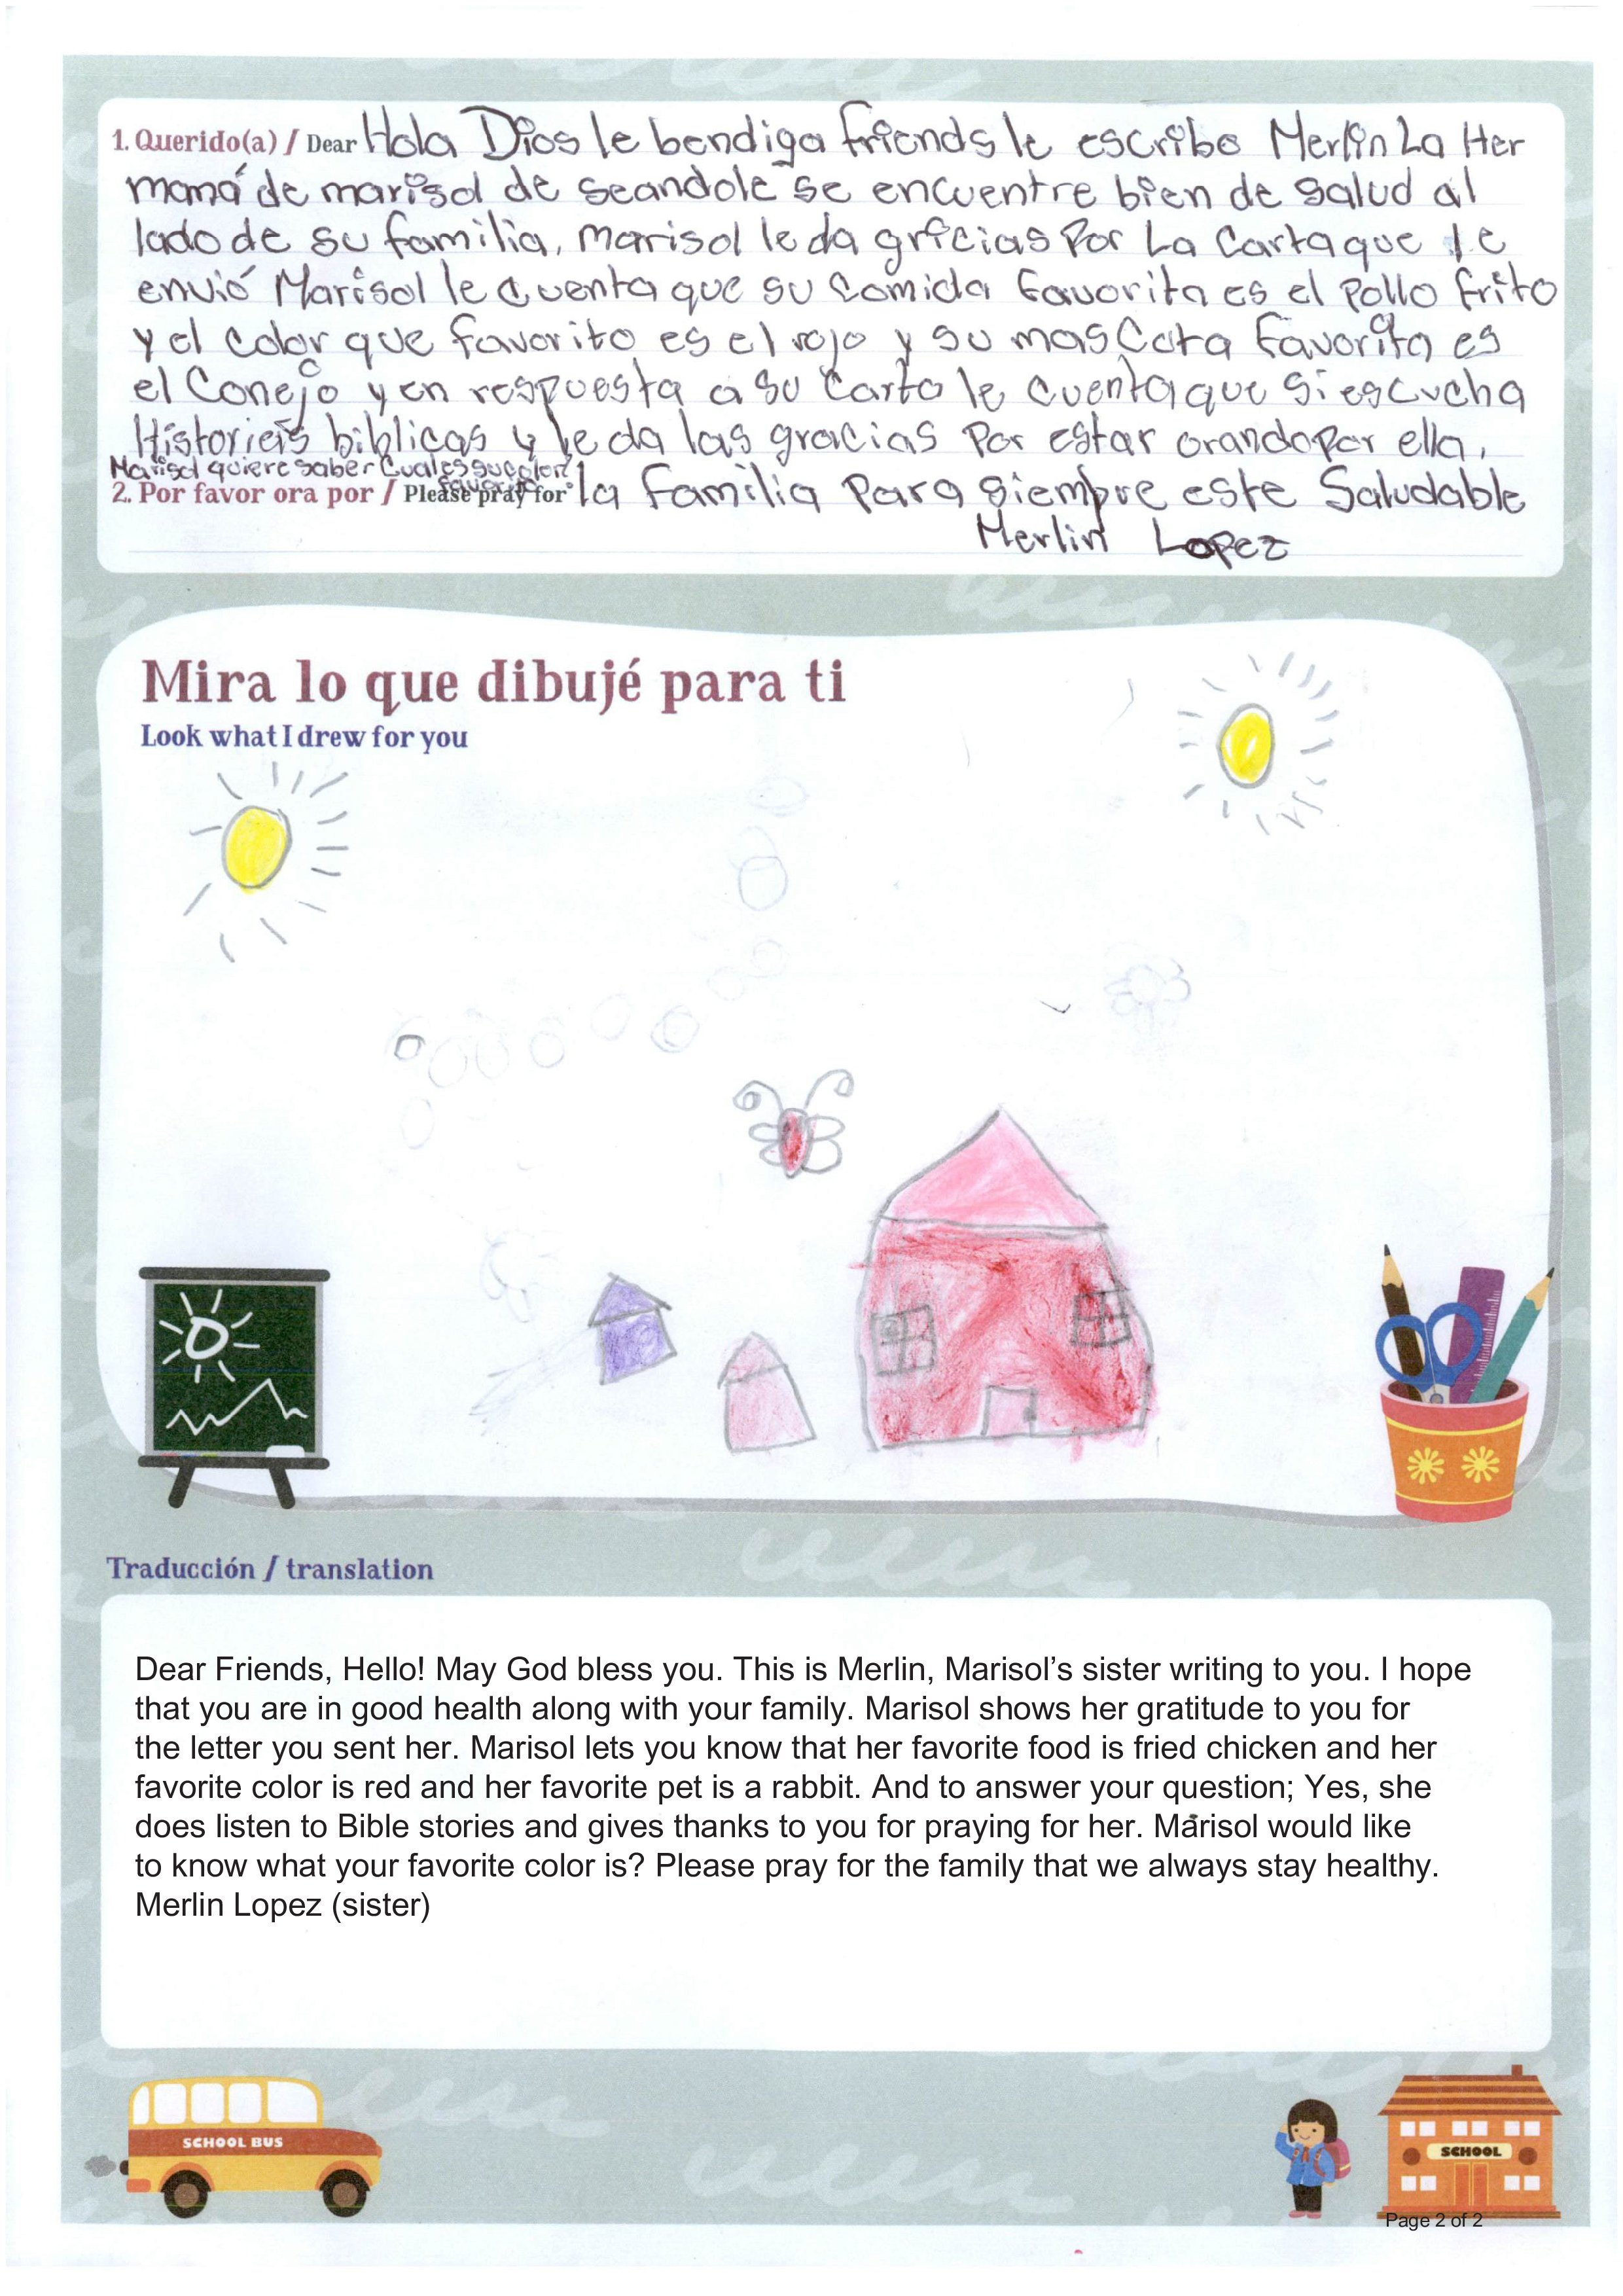 1. Querido(a) / Dear Hola Dios le bendiga friends le escribo Merlin La Her
maná de marisol de seandole se encuentre bien de salud al
lado de su familia, marisol le da gricias Por La Carta que le
envió Marisol le cuenta que su comida favorita es el pollo frito
y el color que favorito es el rojo y su mascota favorita es
el Conejo y en respuesta a su carta le cuenta que si escucha
Historieis biblicas y le da las gracias Por estar orando por ella,
Marisol quiere saber Cual es su color
favorito
2. Por favor ora por / Please pray for la familia Para siempre este Saludable
Merlin Lopez
Mira lo que dibujé para ti
Look what I drew for you
Traducción / translation
Dear Friends, Hello! May God bless you. This is Merlin, Marisol’s sister writing to you. I hope
that you are in good health along with your family. Marisol shows her gratitude to you for
the letter you sent her. Marisol lets you know that her favorite food is fried chicken and her
favorite color is red and her favorite pet is a rabbit. And to answer your question; Yes, she
does listen to Bible stories and gives thanks to you for praying for her. Marisol would like
to know what your favorite color is? Please pray for the family that we always stay healthy.
Merlin Lopez (sister)
SCHOOL BUS
SCHOOL
Page 2 of 2